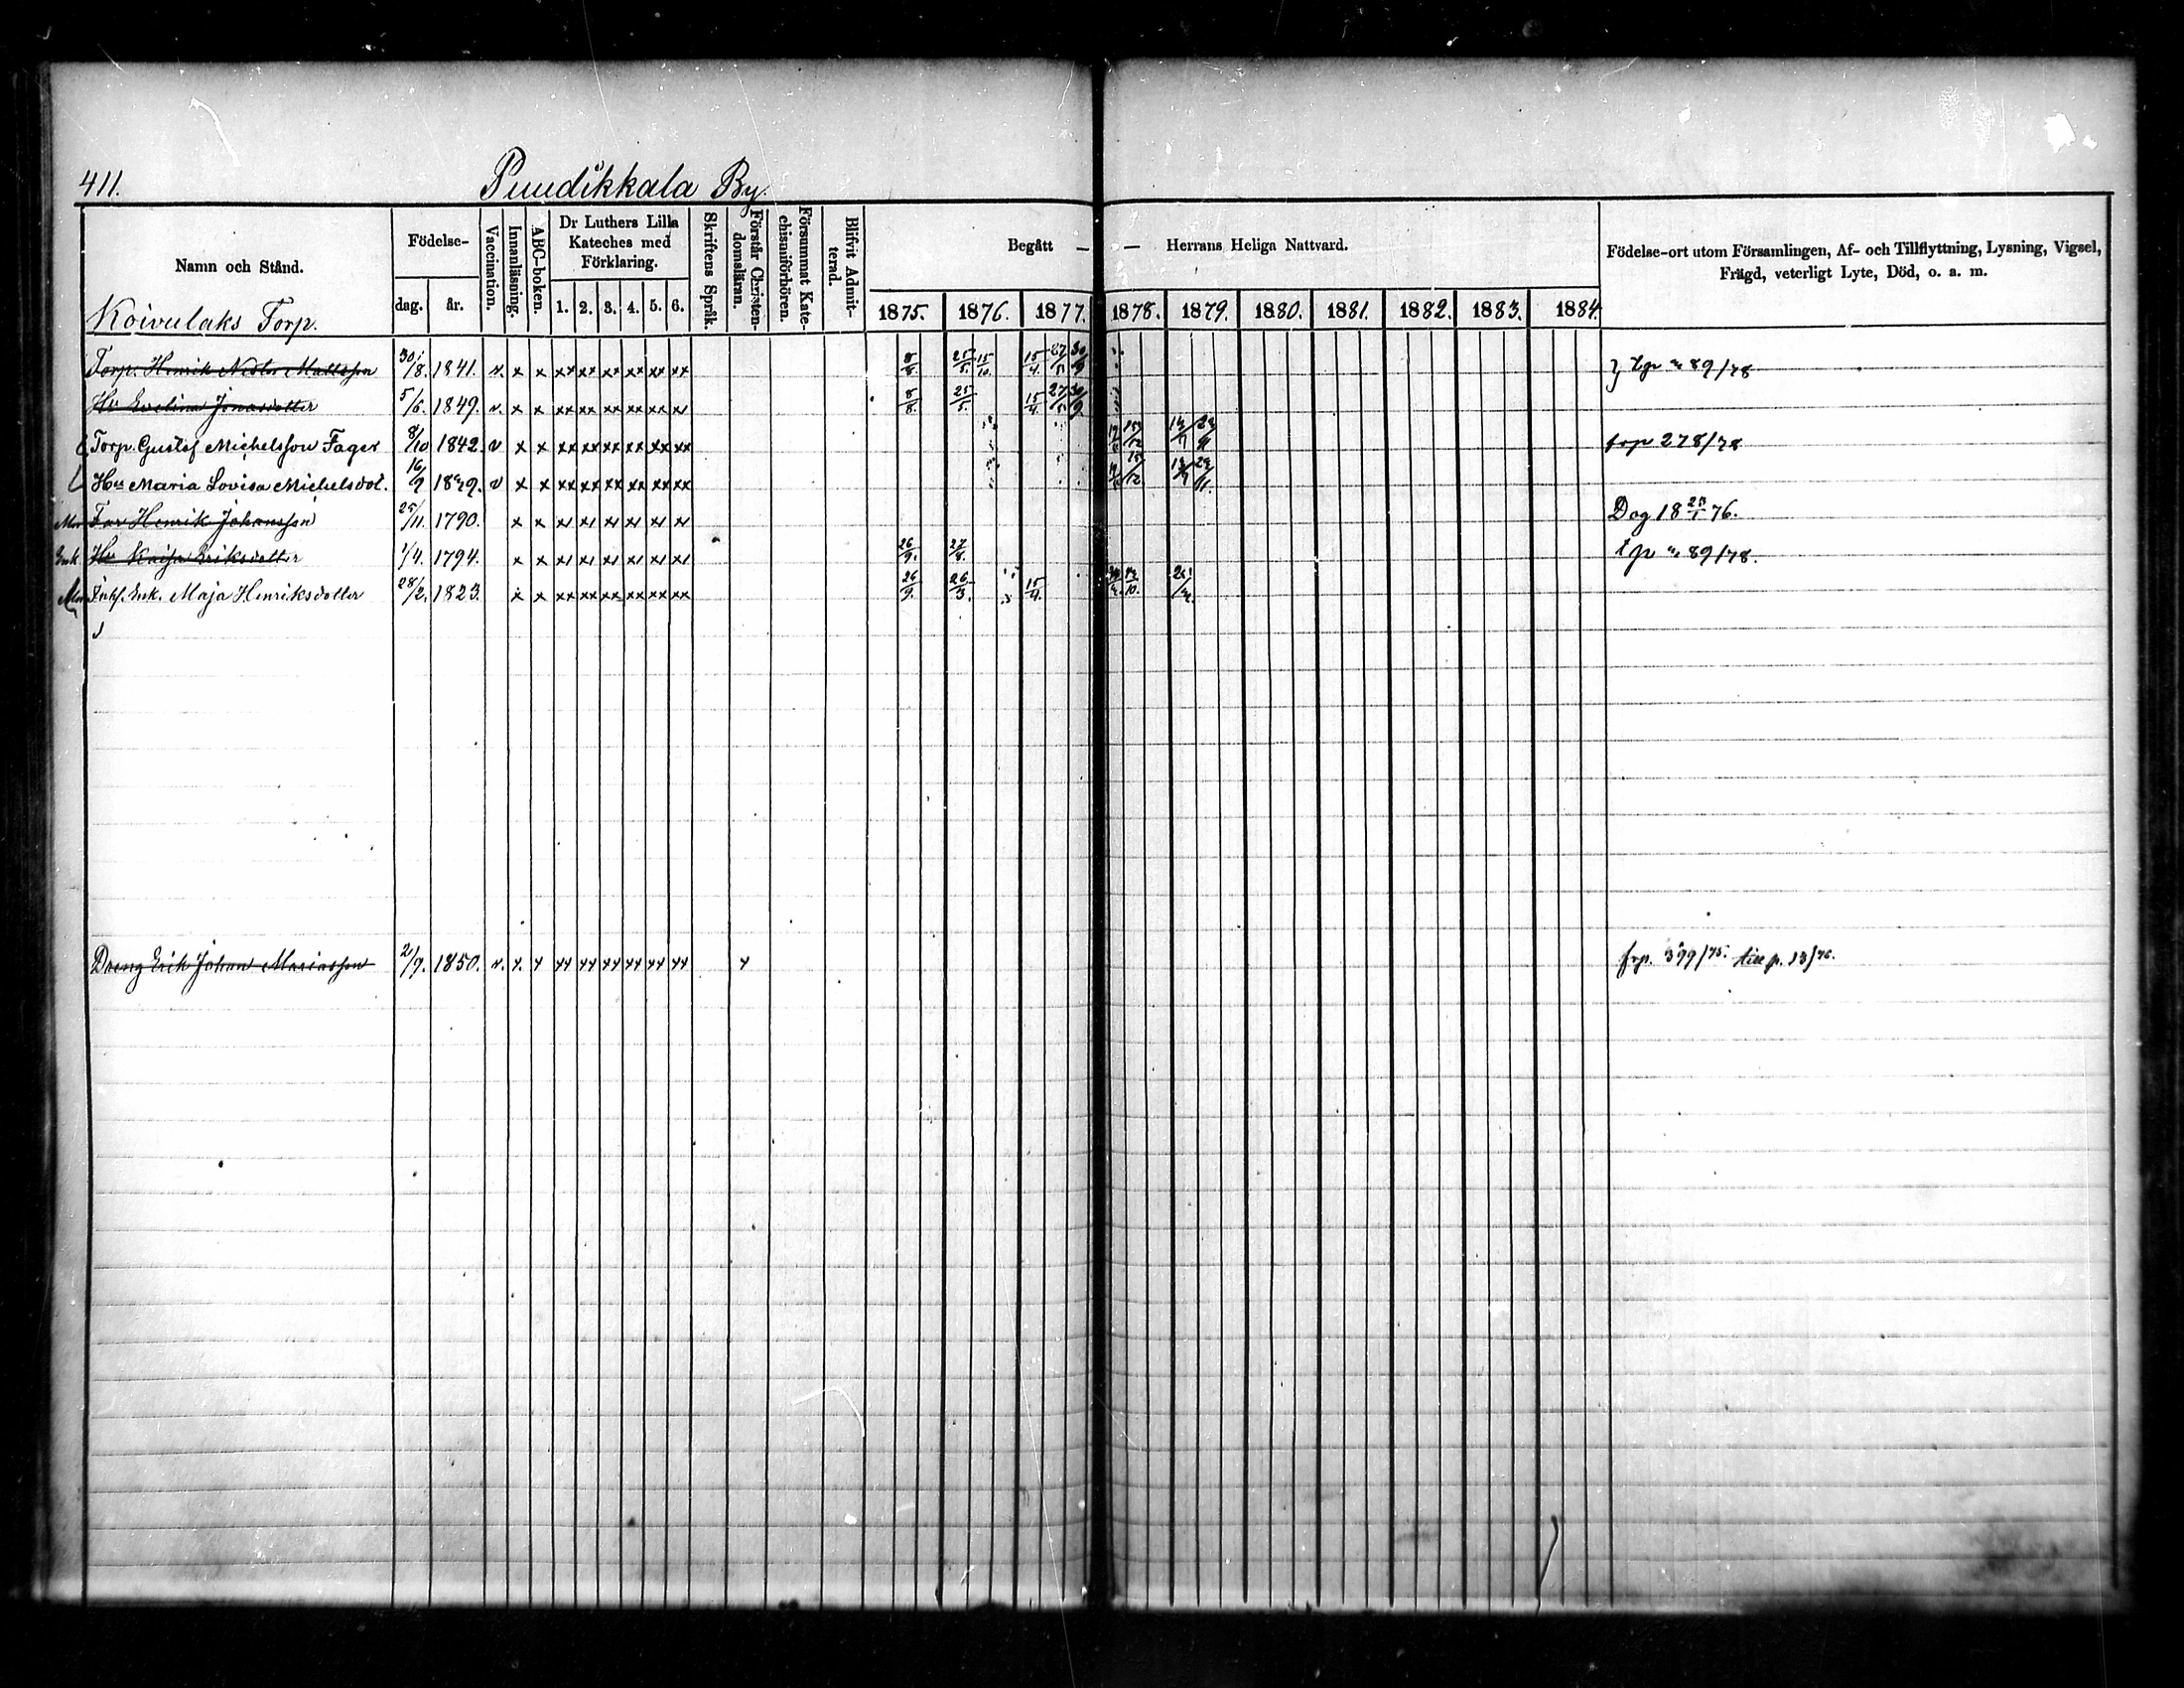 411.
Puudikkala By.
Namn och Stånd.
Födelse-
dag.
år.
Vaccination.
Innanläsning.
ABC-boken.
Dr Luthers Lilla Kateches med Förklaring.
1. 2. 3. 4. 5. 6.
Skriftens Språk.
Förstår Christen-domsläran.
Försummat Kate-chismiförhören.
Blifvit Admit-terad.
Begått — — Herrans Heliga Nattvard.
1875. 1876. 1877. 1878. 1879. 1880. 1881. 1882. 1883. 1884.
Födelse-ort utom Församlingen, Af- och Tillflyttning, Lysning, Vigsel, Frägd, veterligt Lyte, Död, o. a. m.
Koivulaks Torp.
Torp. Henrik Nestor Mattsson 30/8. 1841. v. x x xx xx xx xx xx xx 8/8. 25/5. 15/10. 15/4. 27/5. 30/9 89/78
Hu Evelina Jonasdotter 5/6. 1849. v. x x xx xx xx xx xx xx 8/8. 25/5. 15/4. 27/5. 30/9.
Torp. Gustaf Michelsson Fager 8/10 1842. v x x xx xx xx xx xx xx frp 278/78
Hu Maria Lovisa Michelsdot. 16/9 v x x xx xx xx xx xx xx
Far Henrik Johansson 25/11. 1790. x x x x x x x x Dog 18 76.
Enk. Hu Kaisa Eriksdotter 1/4. 1794. x x x x x x x x 26/9. 27/8. tp 89/78.
Inhs. Enk. Maja Henriksdotter 28/2. 1823. x x xx xx xx xx xx xx 26/9. 26/3. 15/4.
Dreng Erik Johan Mariasson 2/7. 1850. v. x. x xx xx xx xx xx xx x frp. 399/75. till p. 13/76.